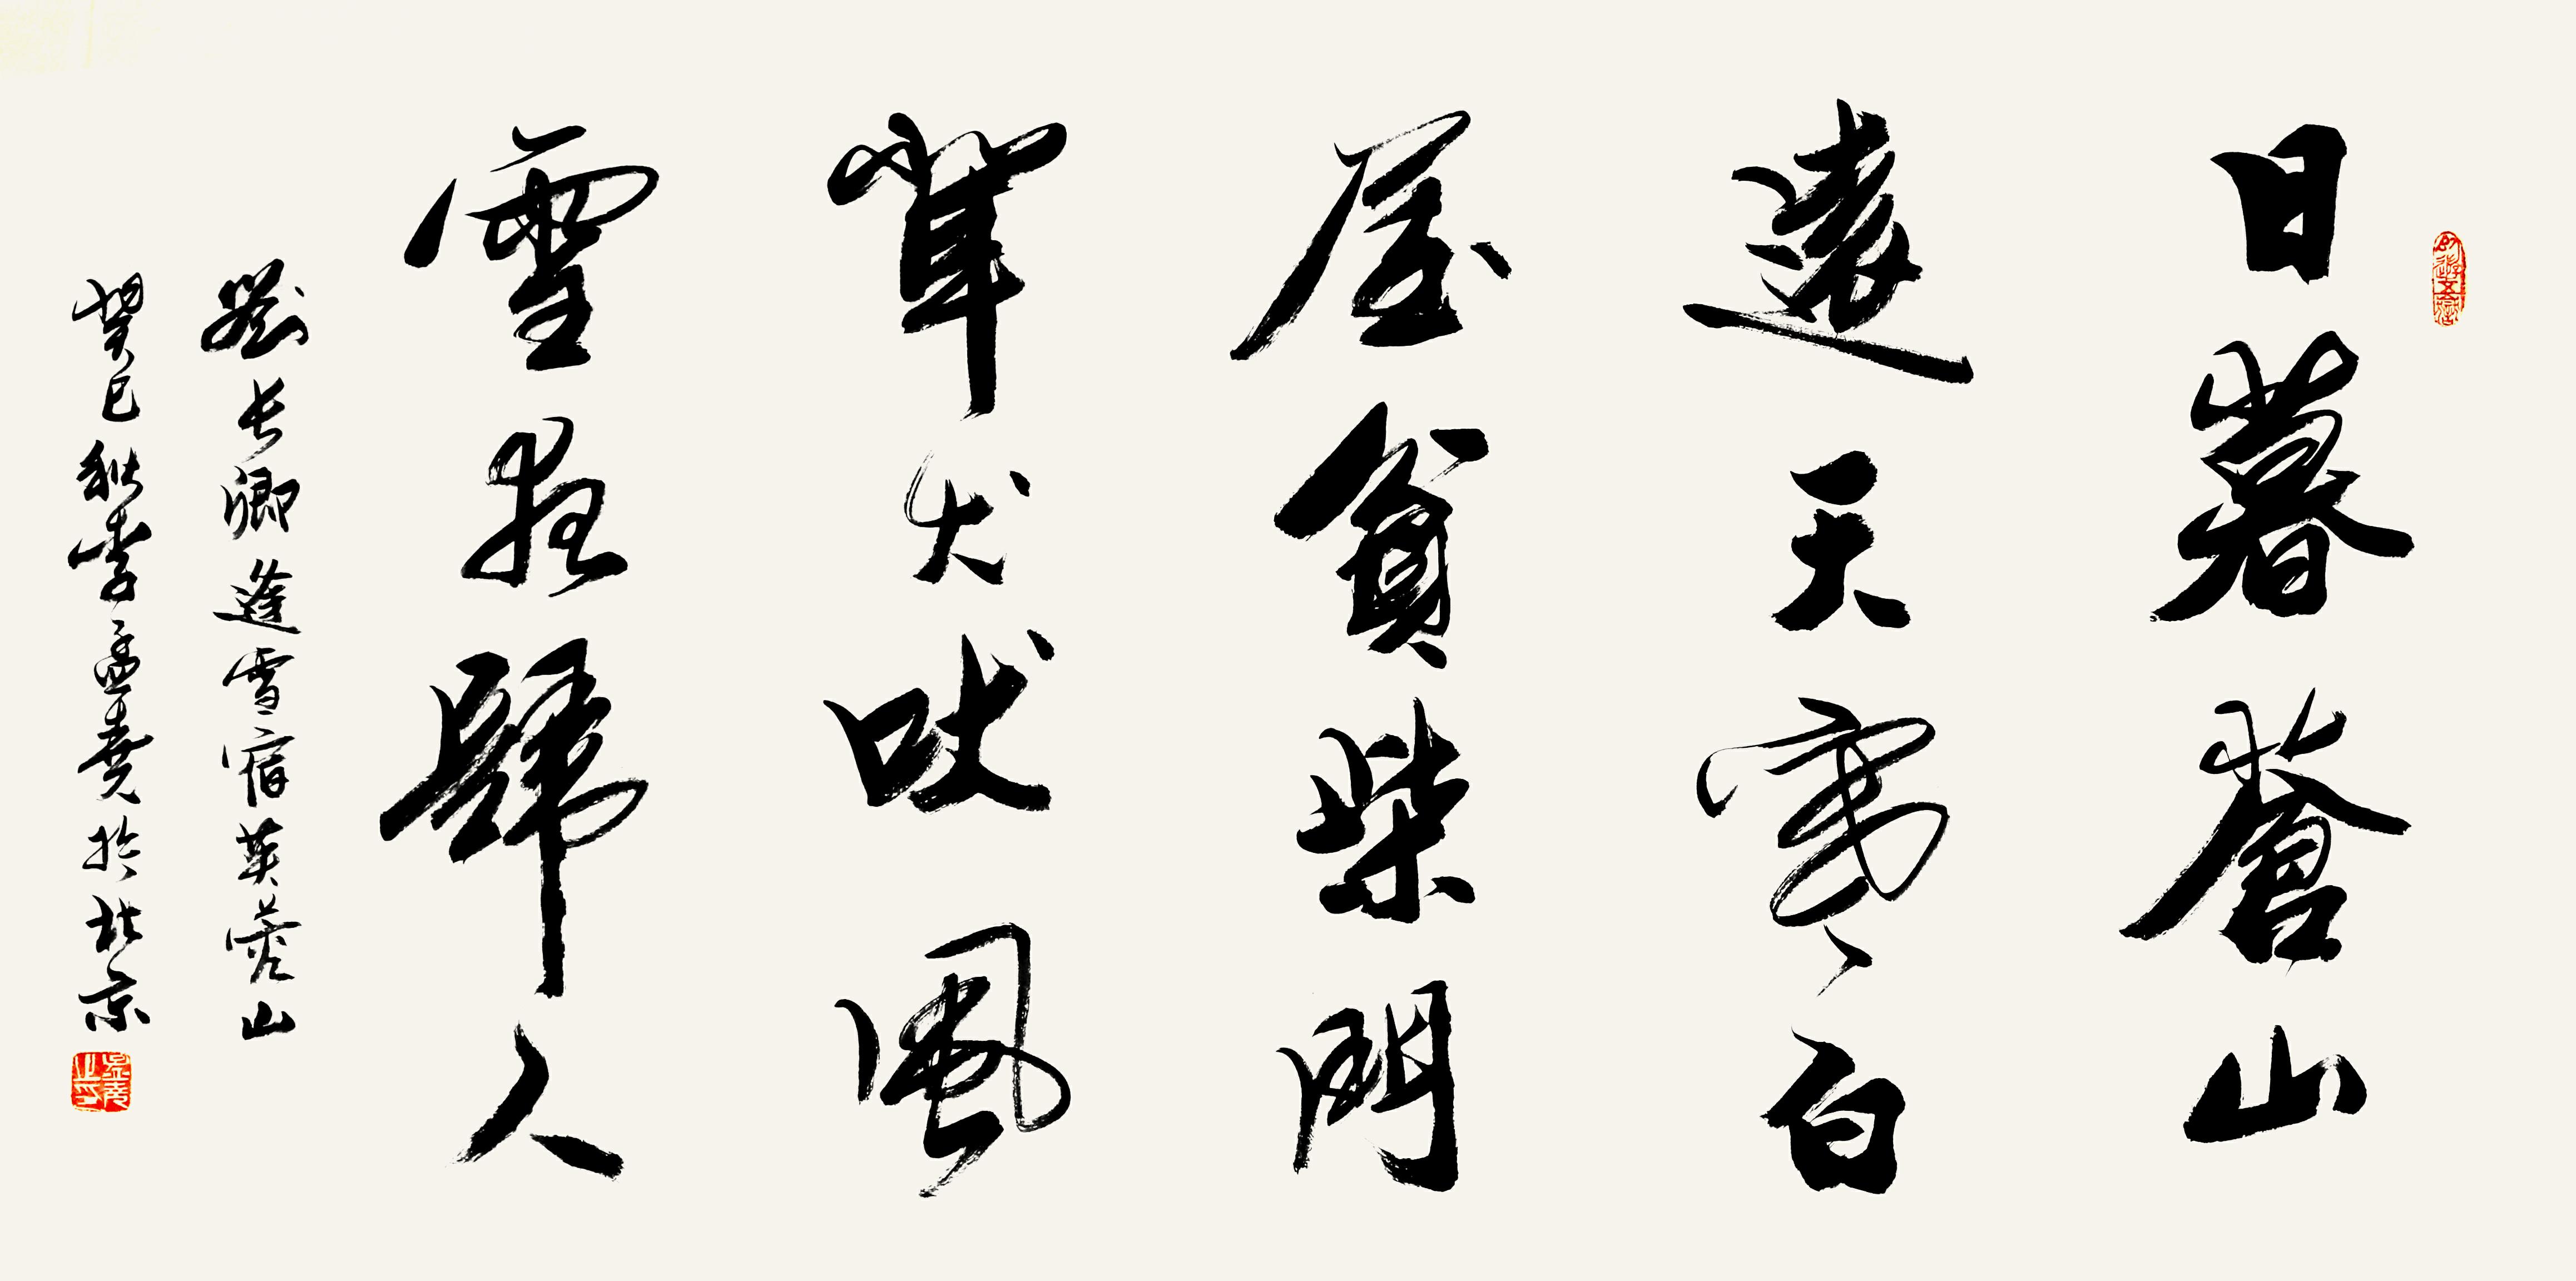 日暮蒼山
遠天寒白
屋貧柴門
聞犬吠風
雪夜歸人
劉長卿逢雪宿芙蓉山
癸巳秋李孟堯於北京
孟堯之印